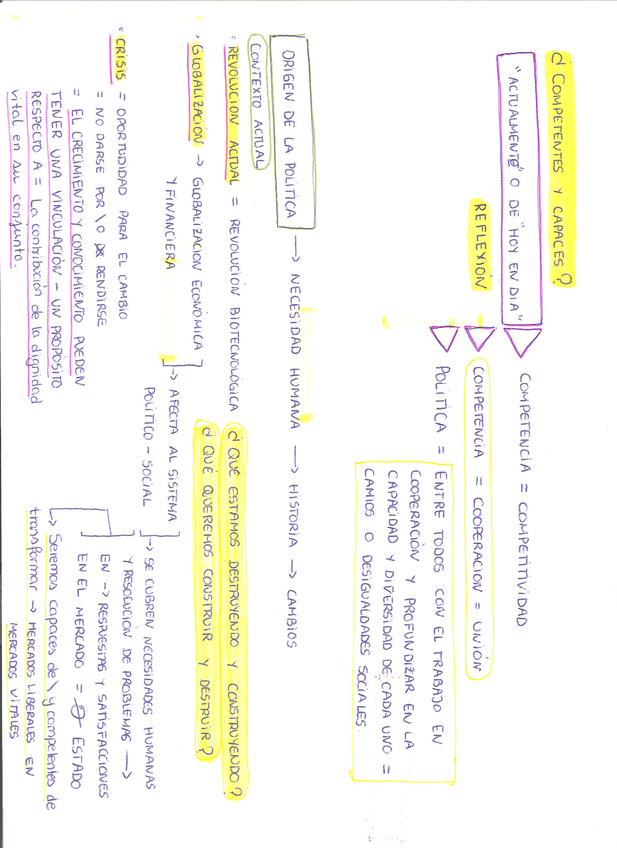 ¿ COMPETENTES Y CAPACES ?
"ACTUALMENTE" O DE "HOY EN DIA"
COMPETENCIA = COMPETITIVIDAD
REFLEXIÓN
COMPETENCIA = COOPERACION = UNIÓN
POLÍTICA = ENTRE TODOS CON EL TRABAJO EN
COOPERACIÓN Y PROFUNDIZAR EN LA
CAPACIDAD Y DIVERSIDAD DE CADA UNO =
CAMIOS O DESIGUALDADES SOCIALES.
ORIGEN DE LA POLÍTICA → NECESIDAD HUMANA → HISTORIA → CAMBIOS
CONTEXTO ACTUAL
· REVOLUCION ACTUAL = REVOLUCIÓN BIOTECNOLÓGICA
¿ QUÉ ESTAMOS DESTRUYENDO Y CONSTRUYENDO ?
¿ QUÉ QUEREMOS CONSTRUIR Y DESTRUIR ?
· GLOBALIZACIÓN → GLOBALIZACIÓN ECONÓMICA
Y FINANCIERA
→ AFECTA AL SISTEMA
POLÍTICO - SOCIAL
→ SE CUBREN NECESIDADES HUMANAS
Y RESOLUCIÓN DE PROBLEMAS →
EN → RESPUESTAS Y SATISFACCIONES
EN EL MERCADO = ESTADO
→ Seremos capaces de \ y competentes de
transformar → MERCADOS LIBERALES EN
MERCADOS VITALES
· CRISIS = OPORTUDIDAD PARA EL CAMBIO
= NO DARSE POR \ O RENDIRSE
= EL CRECIMIENTO Y CONOCIMIENTO PUEDEN
TENER UNA VINCULACIÓN - UN PROPÓSITO
RESPECTO A = La contribución de la dignidad
vital en su conjunto.